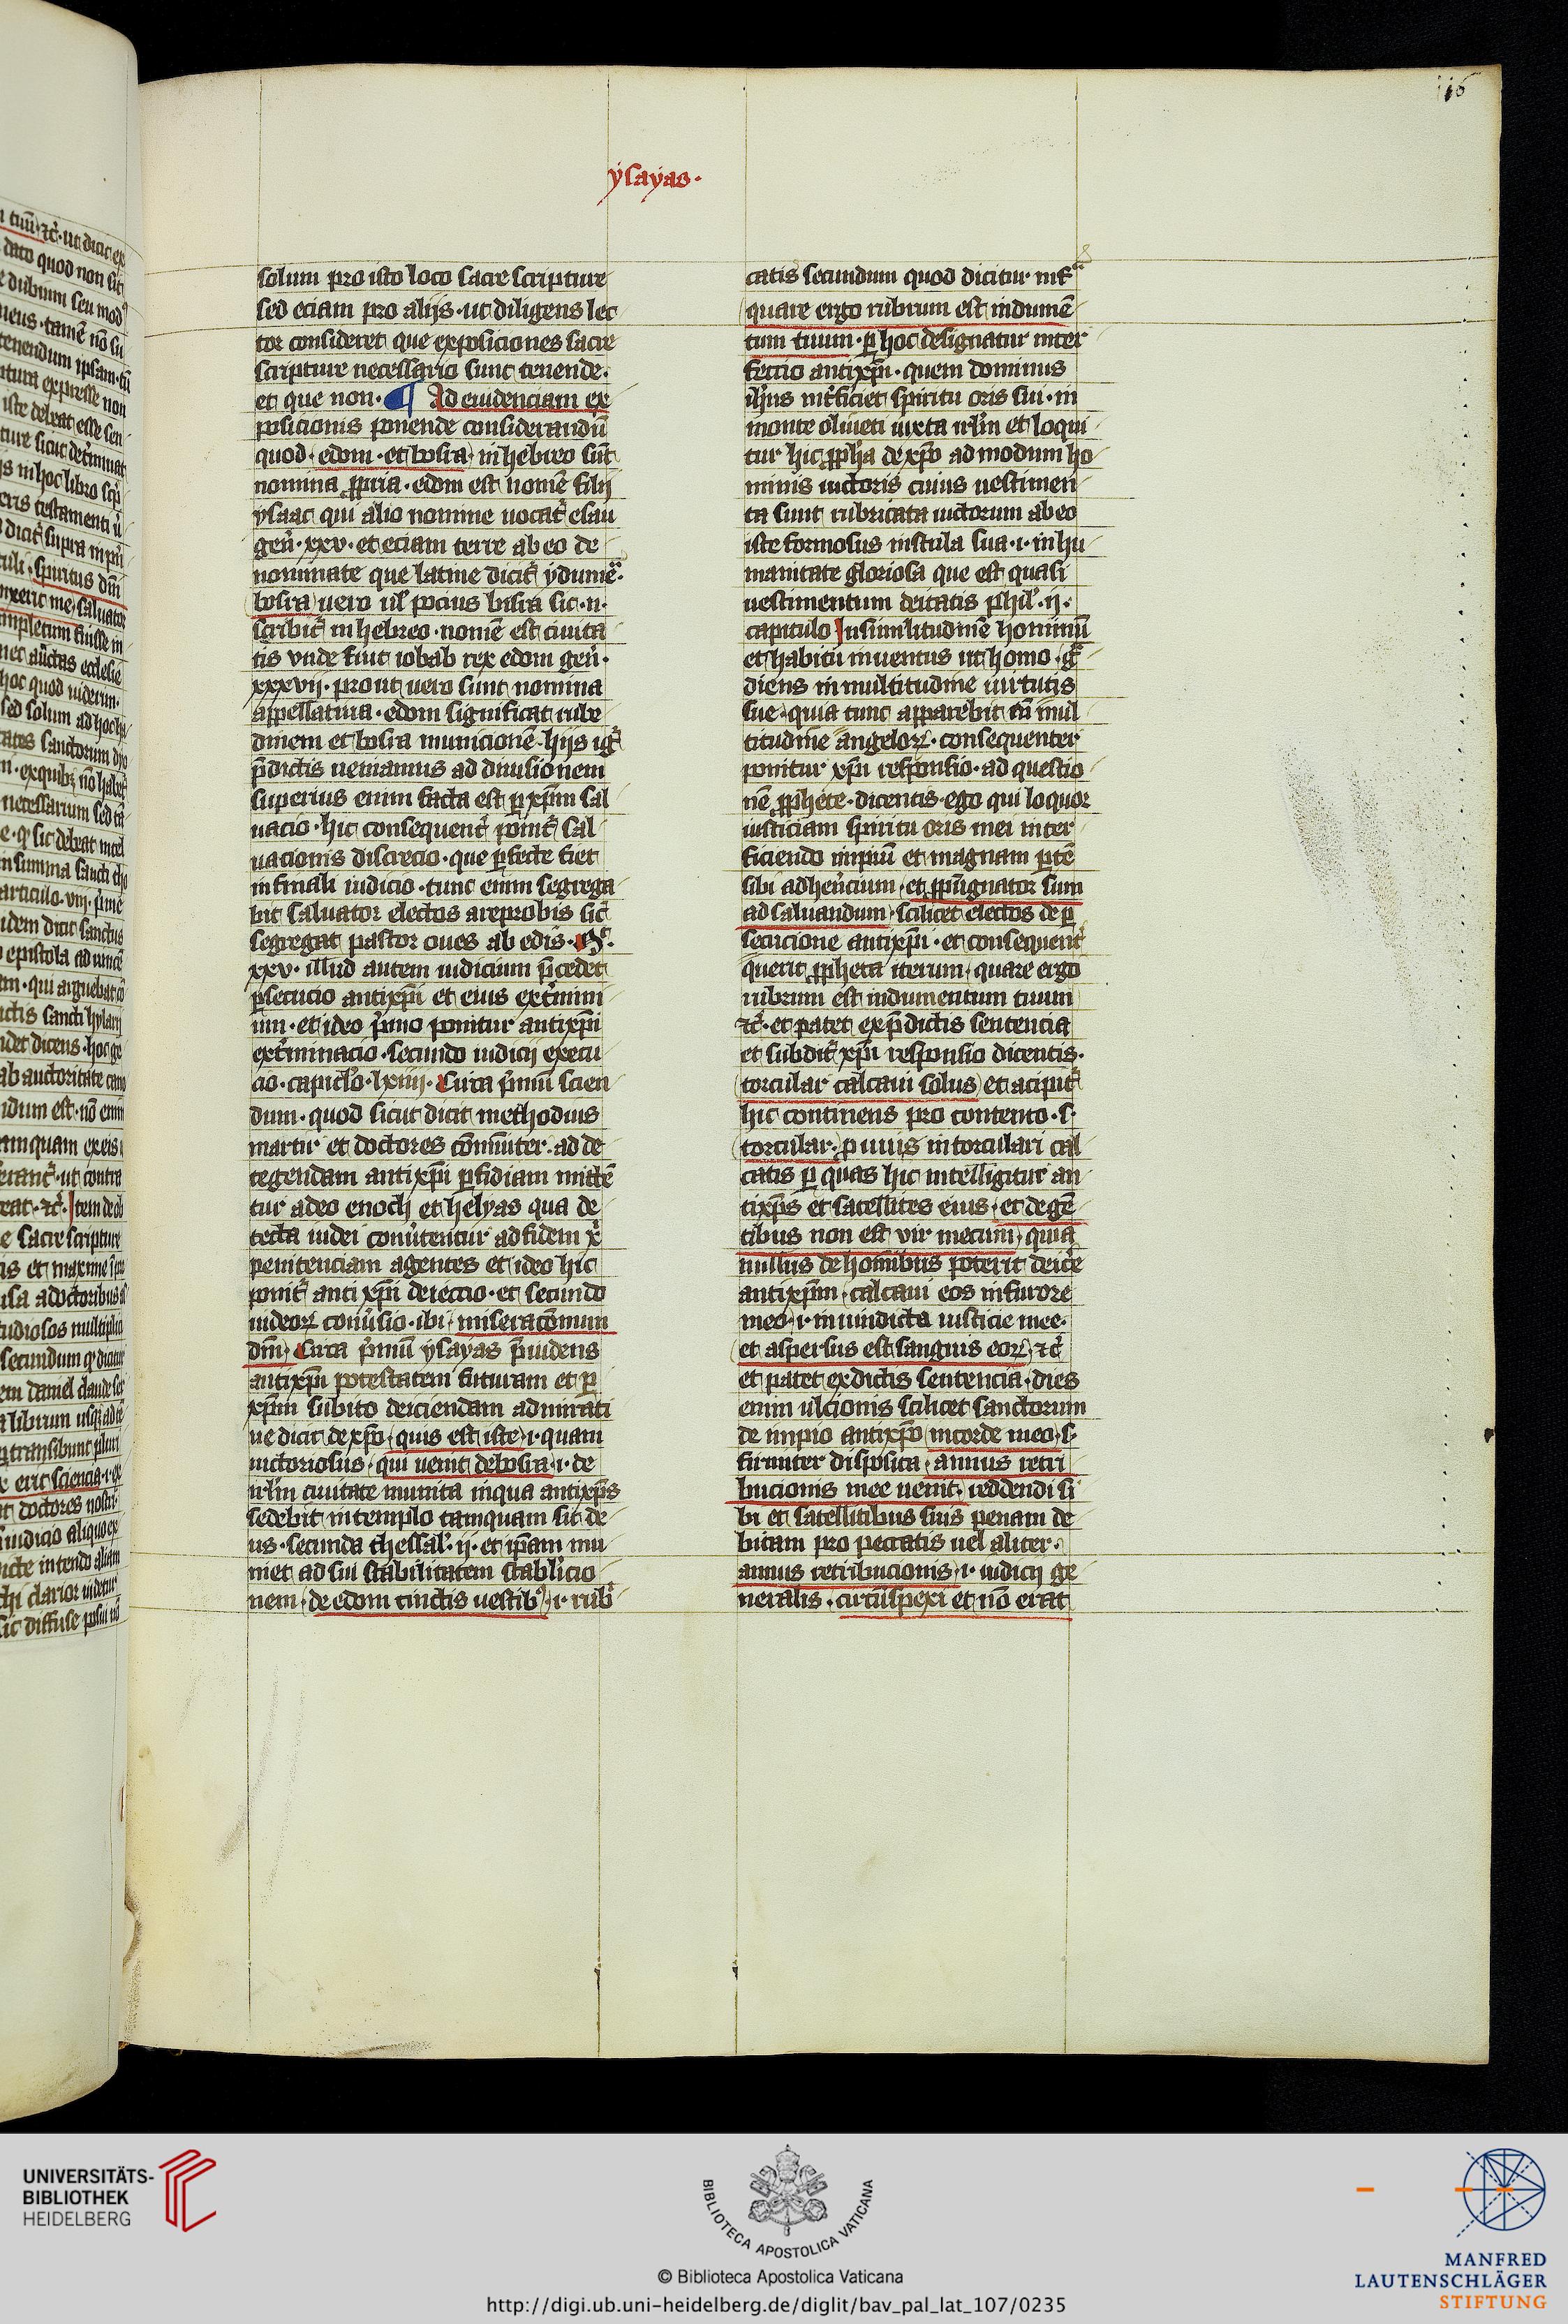 116
ysayas·
solum pro isto loco sacre scripture
sed eciam pro alijs· ut diligens lec
tor consideret que exposiciones sacre
scripture necessario sunt tenende·
et que non· ¶ Ad euidenciam ex
posicionis ponende considerandū
quod· edom· et bosra· in hebreo sūt
nomina ꝓpria· edom est nomē filij
ysaac qui alio nomine uocat᷑ esau
gen̄· xxv· et eciam terre ab eo de
nominate que latine dicit᷑ ydumea·
bosra uero ul̓ pocius bisra sic· n·
scribit᷑ in hebreo· nomē est ciuita
tis vnde fuit iobab rex edom gen̄·
xxxvij· prout uero sunt nomina
appellatiua· edom significat rube
dinem et bosra municionē· hijs igr̄
p̄dictis ueniamus ad diuisionem
superius enim facta est ꝑ xp̄m sal
uacio· hic consequent᷑ ponit᷑ sal
uacionis discrecio· que ꝑfecte fiet
in finali iudicio· tunc enim segrega
bit saluator electos a reprobis sic̄
segregat pastor oues ab edis· Mͭ·
xxv· illud autem iudicium p̄cedet
ꝑsecucio antixp̄i et eius ext᷑mini
um· et ideo p̓mo ponitur antixp̄i
ext᷑minacio· secundo iudicij execu
cio· capitl̓o· lxiiij· Circa p̓mū scien
dum· quod sicut dicit methodius
martir et doctores cōmūiter· ad de
tegendam antixp̄i ꝑfidiam mittē
tur a deo enoch et helyas qua de
tecta iudei conu᷑tentur ad fidem xͥ
penitenciam agentes et ideo hic
ponit᷑ antixp̄i deieccio· et secundo
iudeoꝝ conu᷑sio· ibi· miseracōnum
dn̄i· Circa p̓mū ysayas p̄uidens
antixp̄i potestatem futuram et ꝑ
xp̄m subito deiciendam admirati
ue dicit de xp̄o· quis est iste· i· quam
uictoriosus· qui uenit de bosra· i· de
irl̄m ciuitate munita in qua antixp̄s
sedebit in templo tamquam sit de
us· secunda thessal̓· ij· et ip̄am mu
niet ad sui stabilitatem stabl̓icio
nem· de edom tinctis uestibꝰ· i· rubͥ
catis secundum quod dicitur inf̄ͣ
quare ergo rubrum est indumē
tum tuum· ꝑ hoc designatur inter
feccio antixp̄i· quem dominus
ih̄us int᷑ficiet spiritu oris sui· in
monte oliueti iuxta irl̄m et loqui
tur hic ꝓph̄a de xp̄o ad modum ho
minis uictoris cuius uestimen
ta sunt rubricata uictorum ab eo
iste formosus in stola sua· i· in hu
manitate gloriosa que est quasi
uestimentum deitatis phil̓· ij·
capitulo In similitudinē hominū
et habitu inuentus ut homo· gͣ
diens in multitudine uirtutis
sue· quia tunc apparebit cū mul
titudine angeloꝝ· consequenter
ponitur xp̄i responsio· ad questio
nē ꝓphete· dicentis· ego qui loquor
iusticiam spiritu oris mei inter
ficiendo impiū et magnam ꝑtē
sibi adher̄cium· et ꝓpūgnator sum
ad saluandum· scilicet electos de ꝑ
secucione antixp̄i· et consequent᷑
querit ꝓpheta iterum· quare ergo
rubrum est indumentum tuum
⁊c̄· et patet ex p̄dictis sentencia
et subdit᷑ xp̄i responsio dicentis·
torcular calcaui solus· et acipit᷑
hic continens pro contento· s·
torcular· ꝓ uuis in torculari cal
catis ꝑ quas hic intelligitur an
tixp̄s et satellites eius· et de gē
tibus non est vir mecum· quia
nullus de hominibus poterit deic᷑e
antixp̄m· calcaui eos in furore
meo· i· in uindicta iusticie mee·
et aspersus est sanguis eoꝝ· ⁊c̄
et patet ex dictis sentencia· dies
enim ulcionis scilicet sanctorum
de impio antixp̄o in corde meo· s·
firmiter disposita· annus retri
bucionis mee uenit· reddendi si
bi et satellitibus suis penam de
bitam pro peccatis uel aliter·
annus retribucionis· i· iudicij ge
neralis· circūspexi et nō erat
UNIVERSITÄTS-
BIBLIOTHEK
HEIDELBERG
BIBLIOTECA APOSTOLICA VATICANA
© Biblioteca Apostolica Vaticana
http://digi.ub.uni-heidelberg.de/diglit/bav_pal_lat_107/0235
MANFRED
LAUTENSCHLÄGER
STIFTUNG